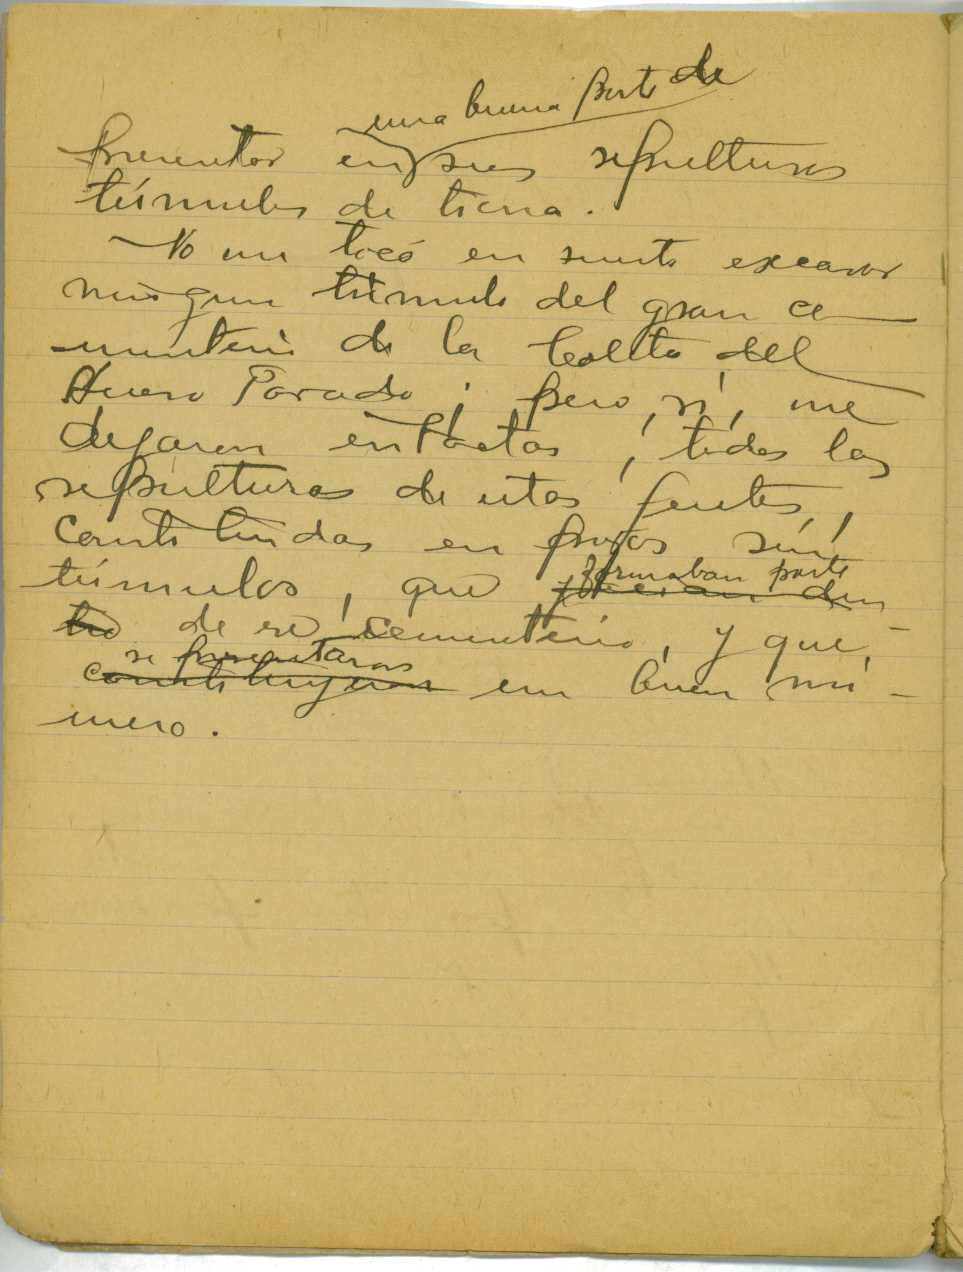 una buena parte de
presentar en sus sepulturas
túmulos de tierra.
No me tocó en suerte excavar
ningun túmulo del gran ce-
menterio de la Caleta del
Huevo Parado; pero, sí, me
dejaron intactas, todas las
sepulturas de estas gentes,
constituidas en pozos sin
formaban parte
túmulos, que
de ese cementerio, y que,
se presentaron
constituyeron en buen nú-
mero.